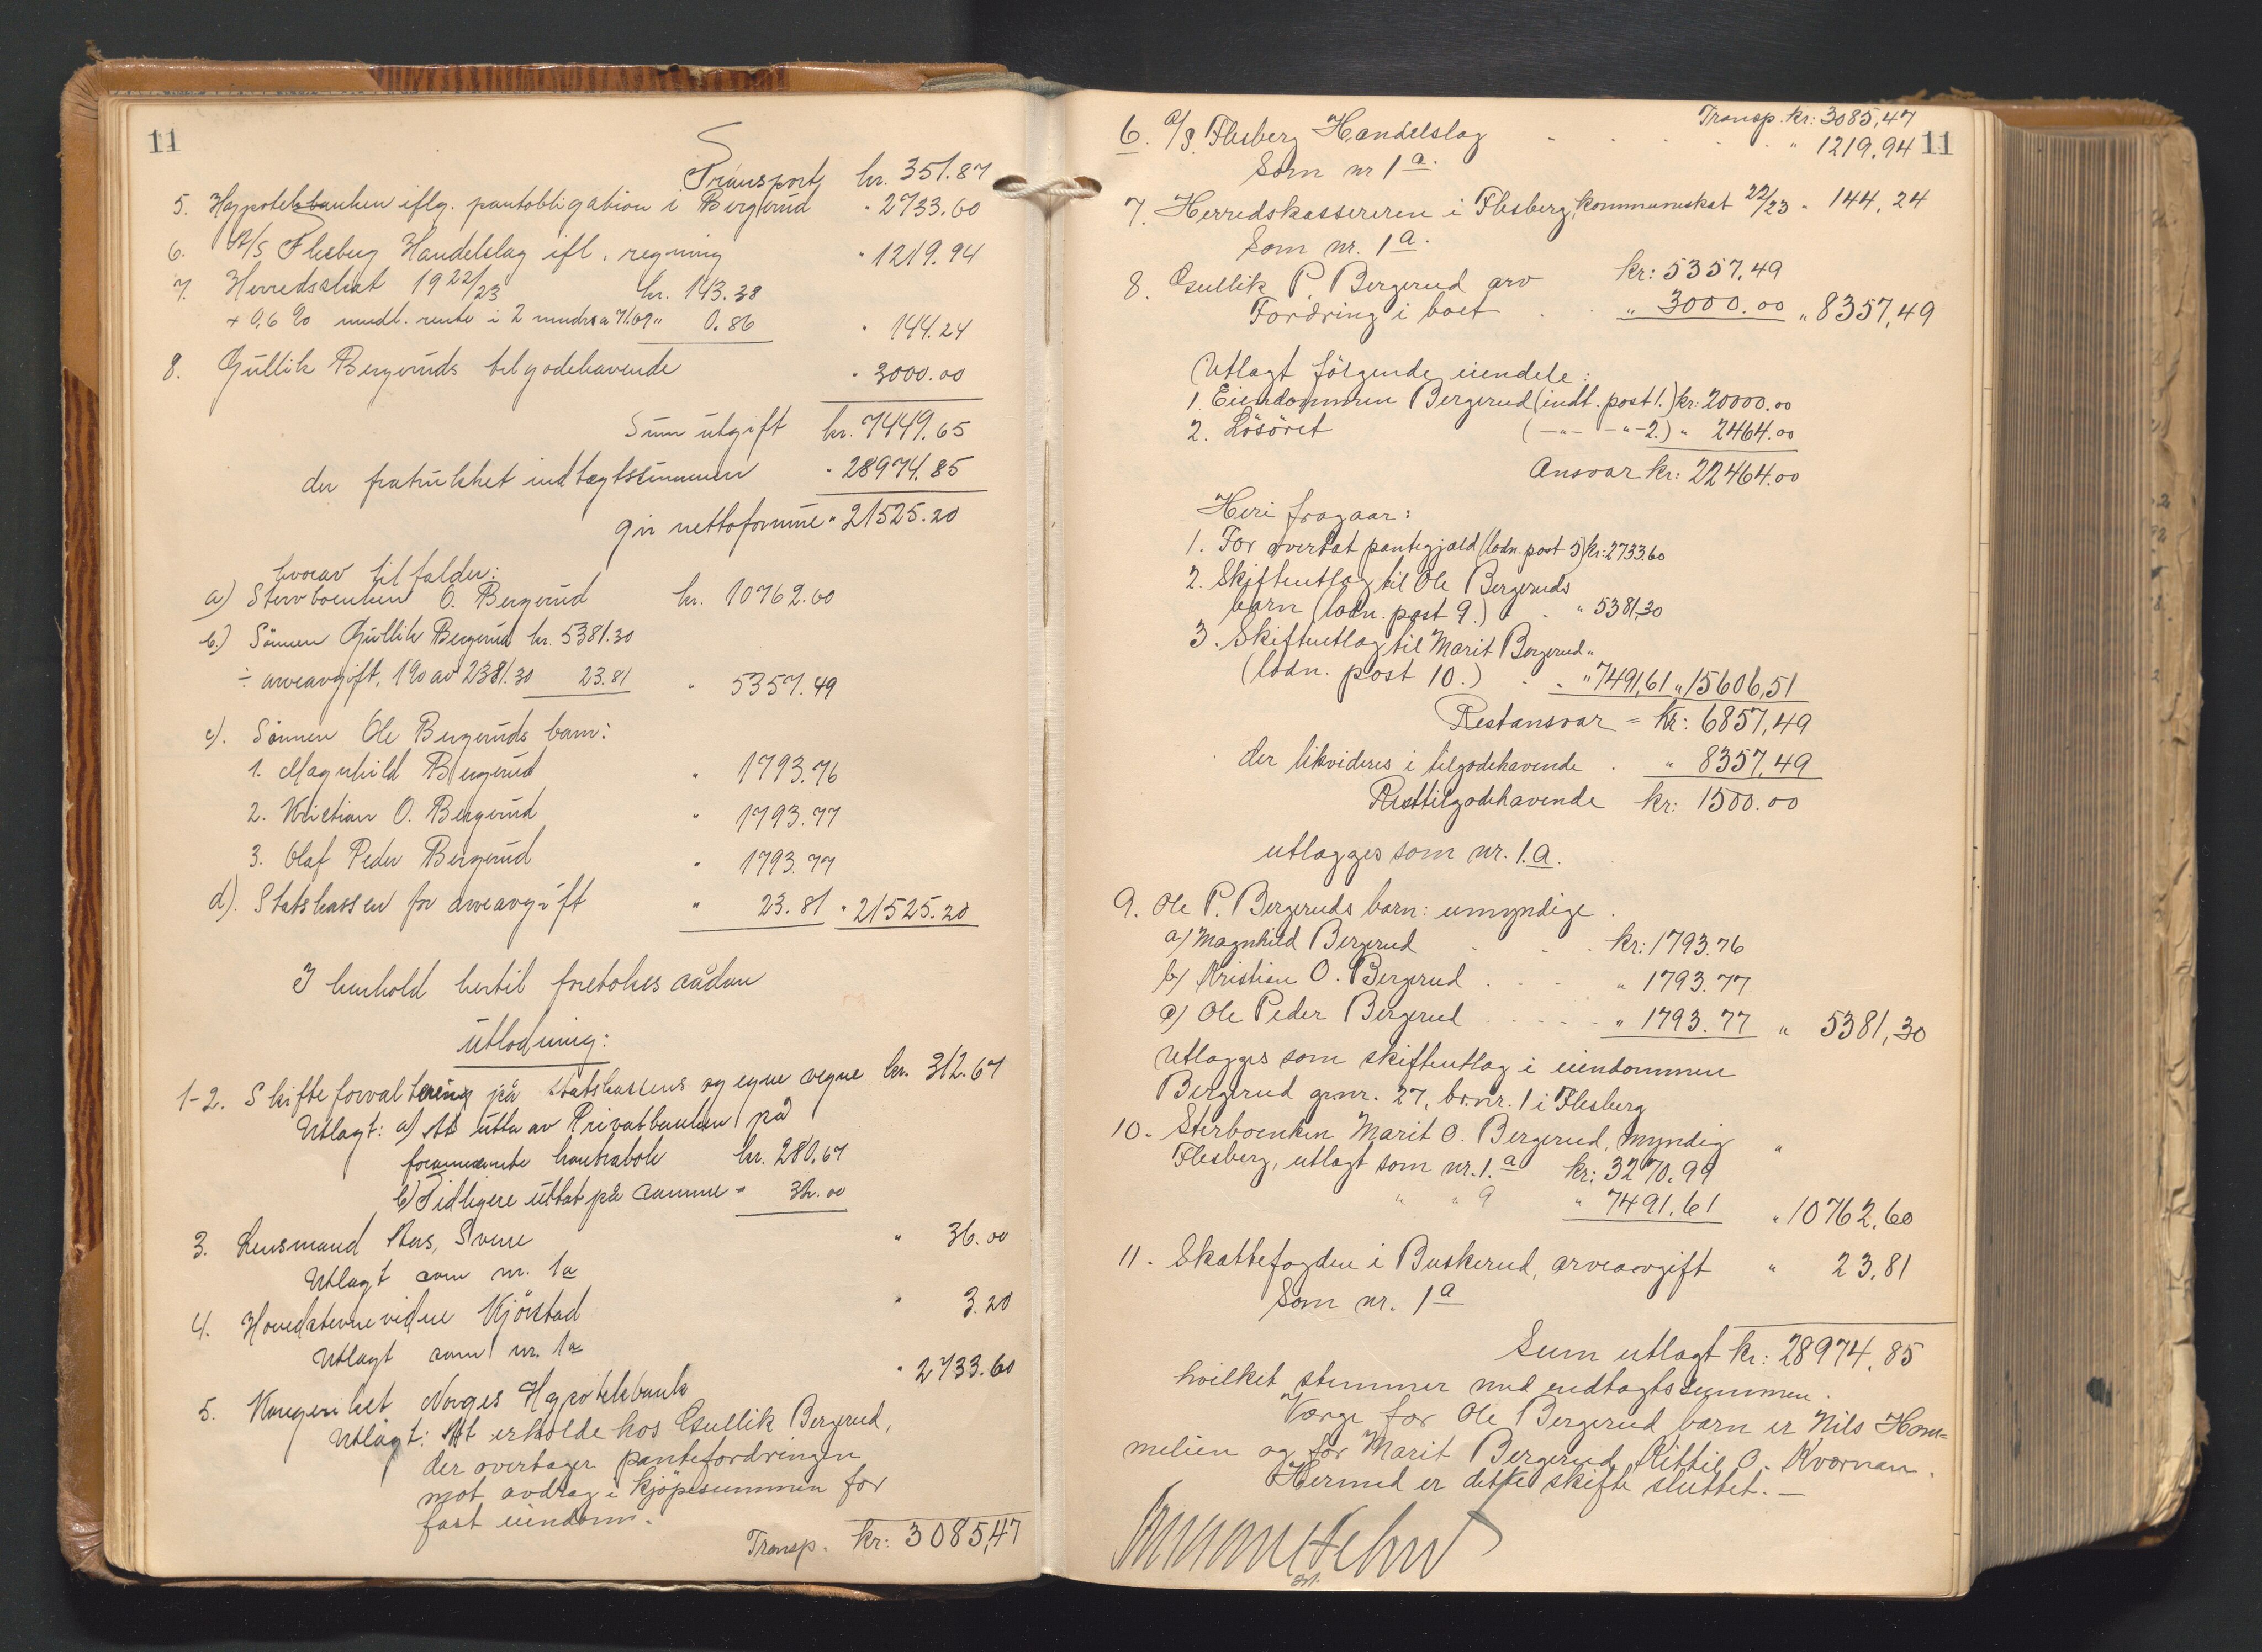 11
Transport kr. 351.87
5. Hypotekbanken iflg. pantobligation i Bergerud " 2733.60
6. A/S Flesberg Handelslag ifl. regning " 1219.94
7. Herredsskat 1922/23 kr. 143.38
+ 0,6 % mndl. rente i 2 mndr. a 71.69 " 0.86 " 144.24
8. Gullik Bergeruds tilgodehavende " 3000.00
Sum utgift kr. 7449.65
der fratrukket indtægtssummen " 28974.85
gir nettoformue " 21525.20
hvorav tilfalder:
a) Stervboenken O. Bergerud kr. 10762.60
b.) Sönnen Gullik Bergerud kr. 5381.30
÷ arveavgift, 1% av 2381.30 23.81 " 5357.49
c). Sönnen Ole Bergeruds barn:
1. Magnhild Bergerud " 1793.76
2. Kristian O. Bergerud " 1793.77
3. Olaf Peder Bergerud " 1793.77
d). Statskassen for arveavgift " 23.81 " 21525.20
I henhold hertil foretokes sådan
Utlodning:
1-2. Skifteforvaltning på statskassens og egne vegne kr. 312.67
Utlagt: a) At utta av Privatbanken på
forannævnte kontrabok kr. 280.67
b) Tidligere uttat på samme " 32.00
3. Lensmand Aas, Svene " 36.00
Utlagt som nr. 1a
4. Hovedstevnevidne Kjörstad " 3.20
Utlagt som nr. 1a
5. Kongeriket Norges Hypotekbank " 2733.60
Utlagt: At erholde hos Gullik Bergerud,
der overtager pantefordringen
mot avdrag i kjöpesummen for
fast eiendom.
Transp. kr: 3085,47
Transp. kr: 3085,47
11
6. A/S. Flesberg Handelslag " 1219,94
Som nr 1a.
7. Herredskassereren i Flesberg, kommuneskat 22/23 " 144,24
Som nr. 1a.
8. Gullik P. Bergerud arv kr: 5357,49
Fordring i boet " 3000.00 " 8357,49
Utlagt fölgende eiendele:
1. Eiendommen Bergerud (indt. post 1.) kr: 20000.00
2. Lösöret (-"- -"- 2.) " 2464.00
Ansvar kr: 22464.00
Heri fragaar:
1. For overtat pantegjæld (lodn. post 5) kr: 2733.60
2. Skifteutlæg til Ole Bergeruds
barn (lodn. post 9.) " 5381,30
3. Skifteutlæg til Marit Bergerud "
(lodn. post 10.) " 7491,61 " 15606,51
Restansvar = kr: 6857,49
der likvideres i tilgodehavende " 8357,49
Resttilgodehavende kr: 1500.00
utlægges som nr. 1.a.
9. Ole P. Bergeruds barn: umyndige.
a) Magnhild Bergerud kr: 1793.76
b) Kristian O. Bergerud " 1793.77
c) Ole Peder Bergerud " 1793.77 " 5381,30
Utlægges som skifteutlæg i eiendommen
Bergerud gr.nr. 27, br.nr. 1 i Flesberg
10. Sterboenken Marit O. Bergerud, myndig "
Flesberg, utlagt som nr. 1.a kr: 3270.99
" " 9 " 7491.61 " 10762,60
11. Skattefogden i Buskerud, arveavgift " 23,81
Som nr. 1a
Sum utlagt kr: 28974,85
hvilket stemmer med indtægtssummen.
Værge for Ole Bergerud barn er Nils Hom=
melien og for Marit Bergerud Kittil O. Kvernan.
Hermed er dette skifte sluttet. —